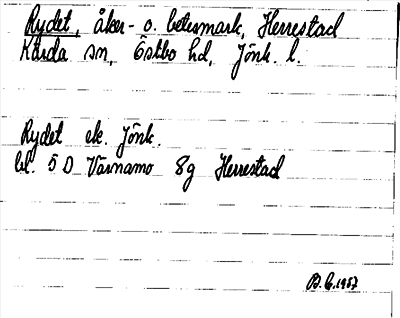 Rydet, åker- o. betesmark, Herrestad
Kärda sn, Östbo hd, Jönk. l.
Rydet ek. Jönk.
bl. 5 D Värnamo 8g Herrestad
1987